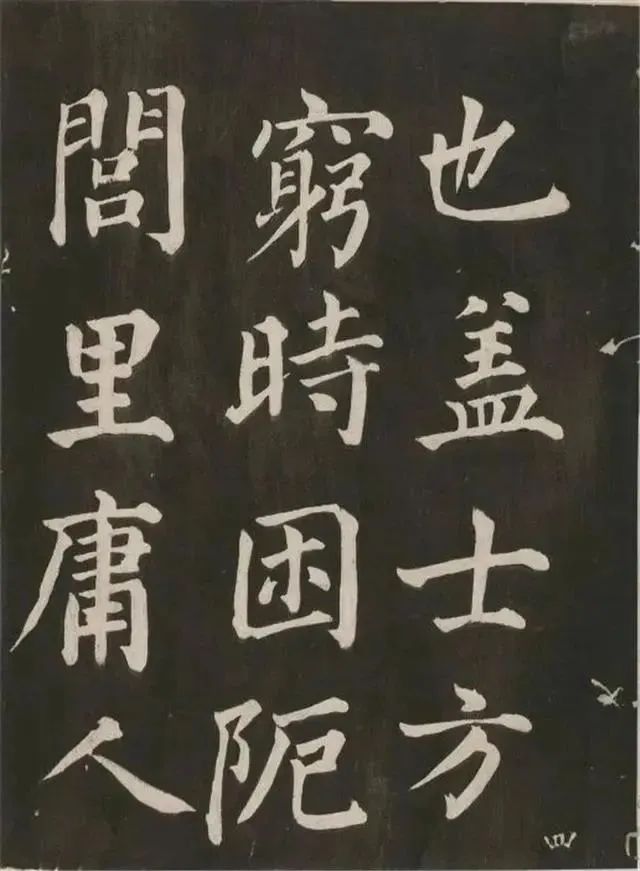 也盖士方
窮時困阨
閭里庸人